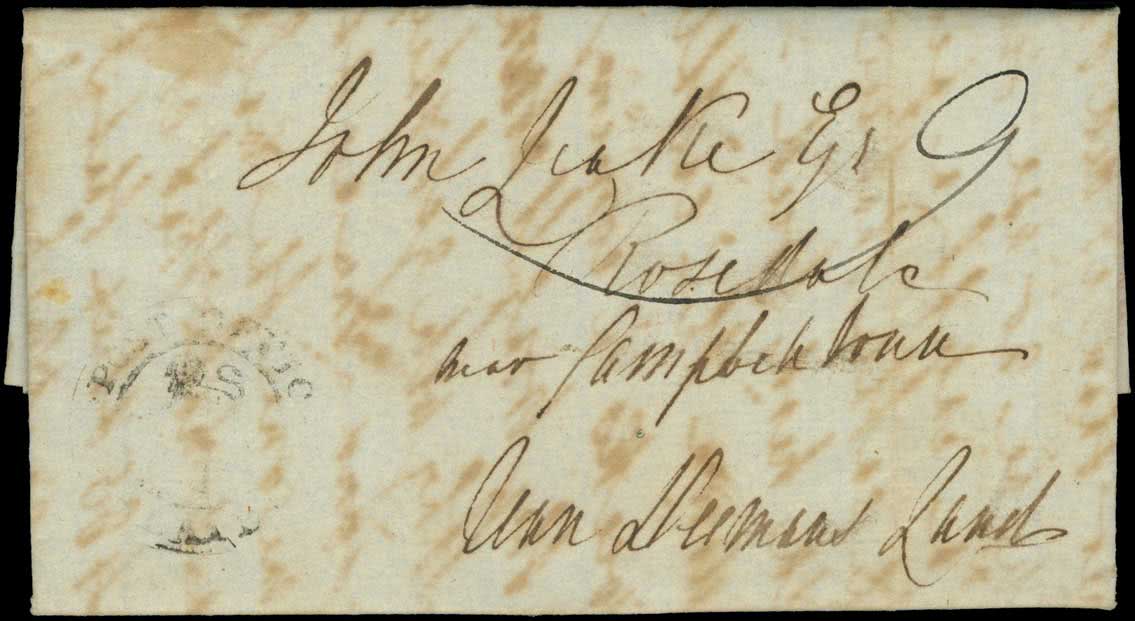 John Leake Esr 9
Rosedale
near Campbelltown
Van Diemans Land